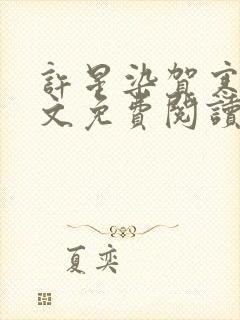 許星染賀寒
文免費閱讀
夏奕